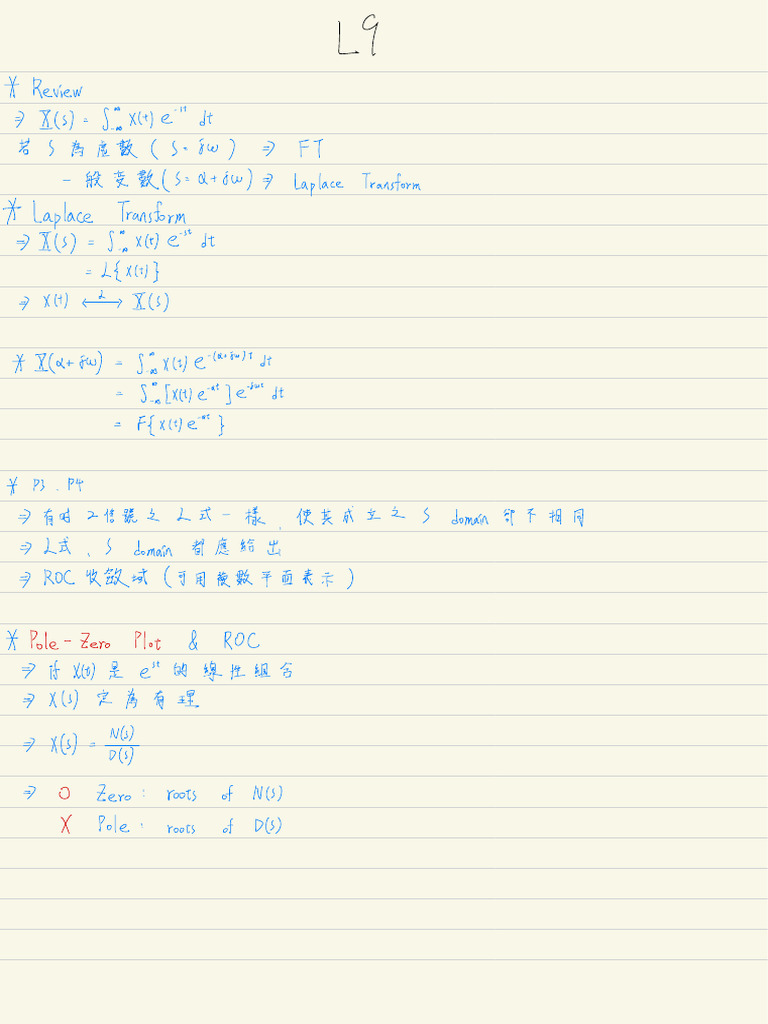 L9
* Review
⇒ X(s) = ∫_{-∞}^{∞} x(t) e^{-st} dt
若 s 為虛數 ( s = jω ) ⇒ FT
一般變數 ( s = α + jω ) ⇒ Laplace Transform
* Laplace Transform
⇒ X(s) = ∫_{-∞}^{∞} x(t) e^{-st} dt
= L{x(t)}
⇒ x(t) ⟷^{L} X(s)
* X(α + jω) = ∫_{-∞}^{∞} x(t) e^{-(α+jω)t} dt
= ∫_{-∞}^{∞} [x(t) e^{-αt}] e^{-jωt} dt
= F{x(t) e^{-αt}}
* P3 . P4
⇒ 有時 2 信號之 L 式一樣、使其成立之 s domain 卻不相同
⇒ L式、s domain 都應給出
⇒ ROC 收斂域 (可用複數平面表示)
* Pole-Zero Plot & ROC
⇒ if x(t) 是 e^{st} 的線性組合
⇒ X(s) 定為有理
⇒ X(s) = N(s)/D(s)
⇒ O Zero : roots of N(s)
X Pole : roots of D(s)